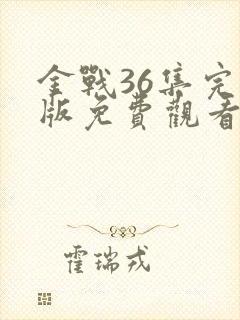 金戰36集完
版免費觀看
霍瑞戎